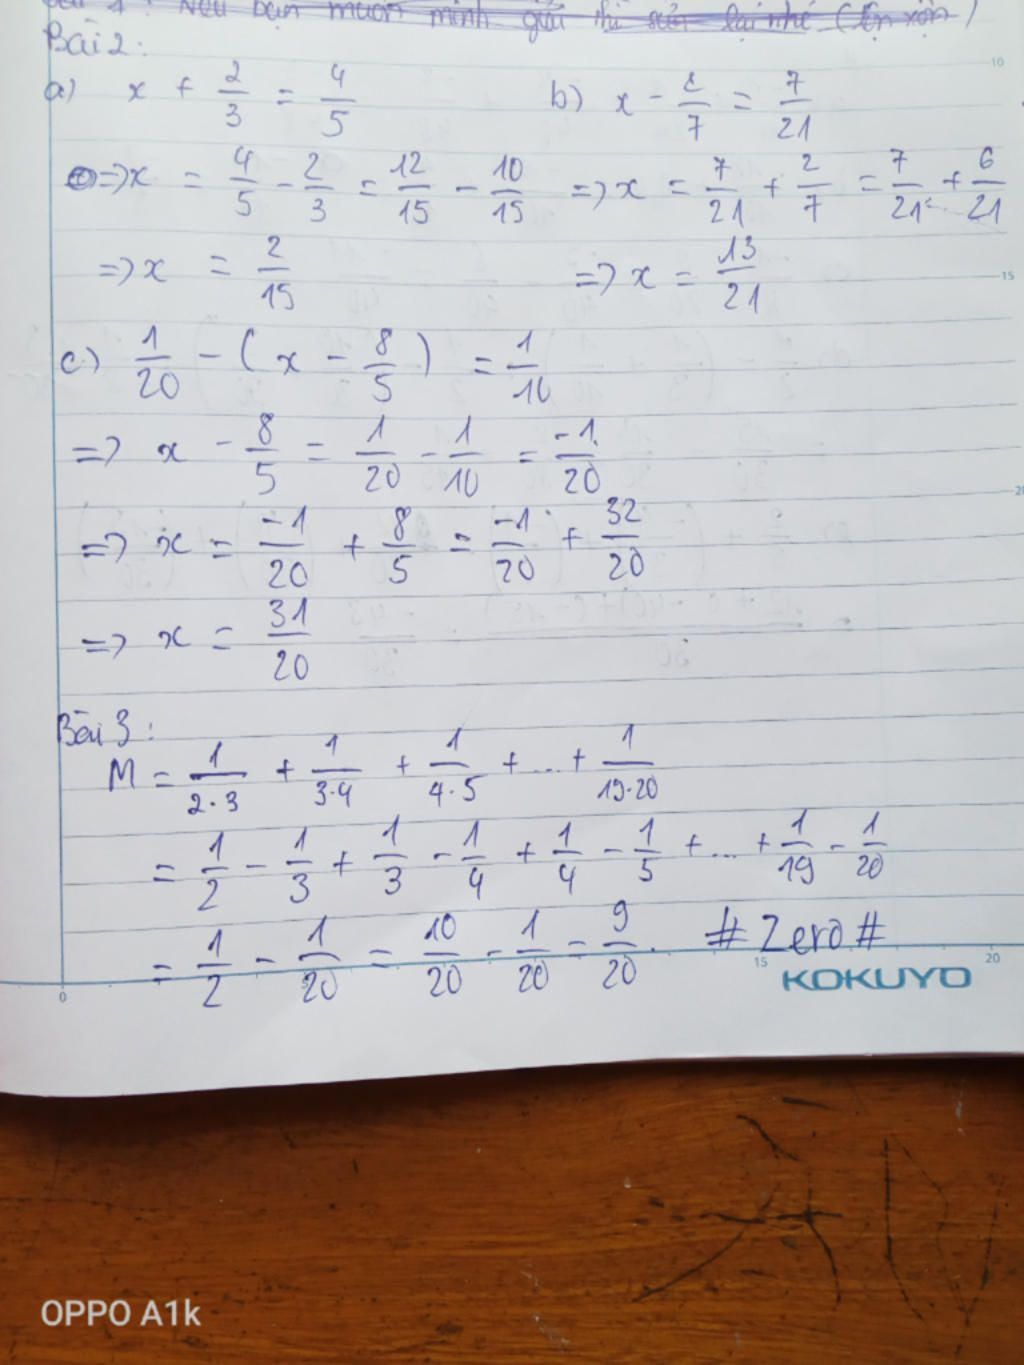 Bài 1: Nếu bạn muốn mình giải thì sửa lại nhé (lộn xộn)
Bài 2:
a) x + 2/3 = 4/5
b) x - 2/7 = 7/21
=> x = 4/5 - 2/3 = 12/15 - 10/15
=> x = 7/21 + 2/7 = 7/21 + 6/21
=> x = 2/15
=> x = 13/21
c) 1/20 - (x - 8/5) = 1/10
=> x - 8/5 = 1/20 - 1/10 = -1/20
=> x = -1/20 + 8/5 = -1/20 + 32/20
=> x = 31/20
Bài 3:
M = 1/2·3 + 1/3·4 + 1/4·5 + ... + 1/19·20
= 1/2 - 1/3 + 1/3 - 1/4 + 1/4 - 1/5 + ... + 1/19 - 1/20
= 1/2 - 1/20 = 10/20 - 1/20 = 9/20. #Zero#
10
15
20
0
5
15
20
KOKUYO
OPPO A1k